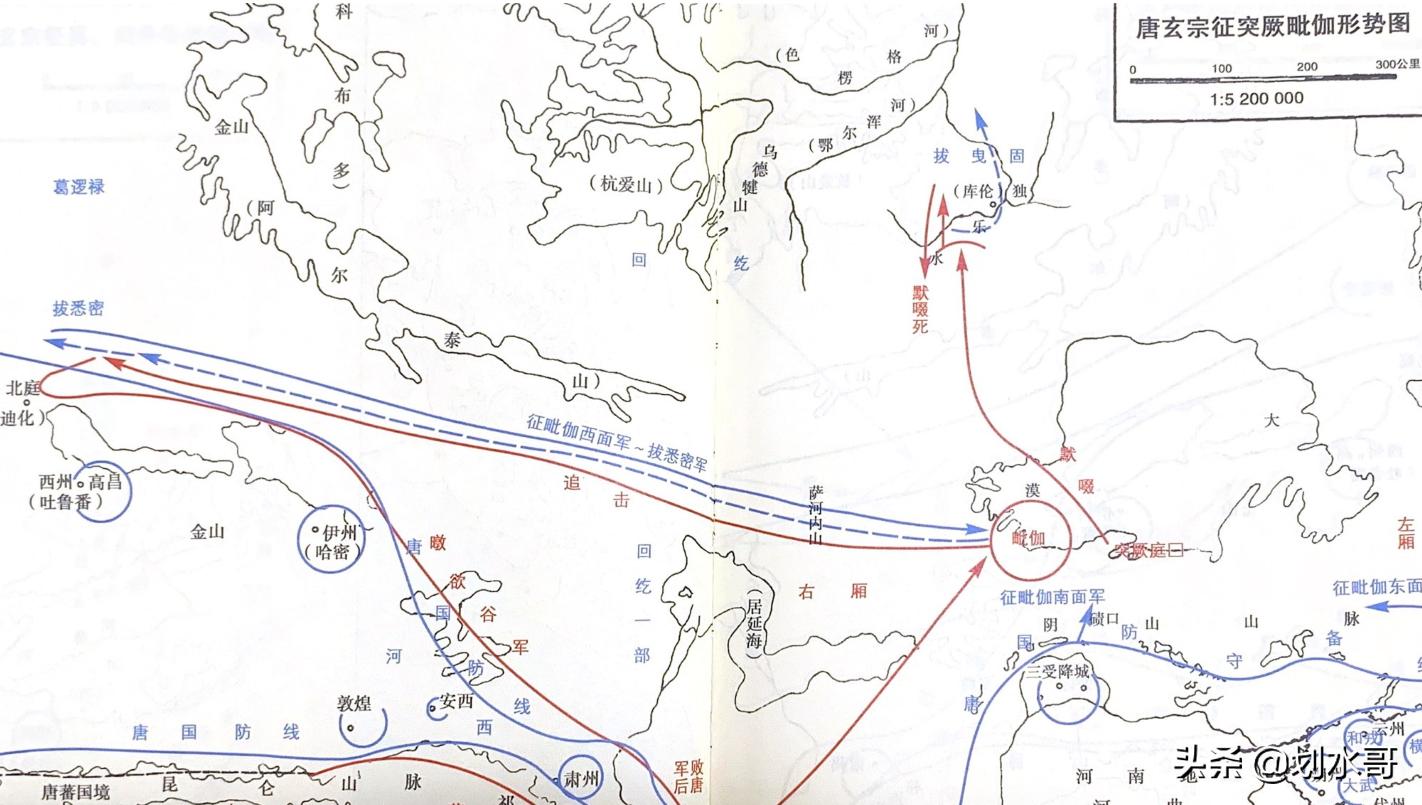 唐玄宗征突厥毗伽形势图
0 100 200 300公里
1:5 200 000
科
布
多)
金山
(阿
尔
泰
山)
葛逻禄
(杭爱山)
乌德犍山
(色
楞
格
河)
(鄂
尔
浑
河)
拔曳固
(库伦)
独
乐
水
回
纥
默啜死
拔悉密
北庭
迪化)
征毗伽西面军~拔悉密军
追击
萨河内山
大
漠
默
啜
毗伽
突厥庭
左厢
西州 高昌
(吐鲁番)
金山
伊州
(哈密)
唐
国
防
线
暾
欲
谷
军
回
纥
一
部
(居延海)
右厢
征毗伽南面军
征毗伽东面
阴
碛口
山
山
脉
唐
国
防
守
备
三受降城
河
西
敦煌
安西
唐国防线
肃州
败唐
军后
唐蕃国境
昆
仑
山
脉
祁
河南地
河
曲
云州
和戎
横
大武
头条 @划水哥